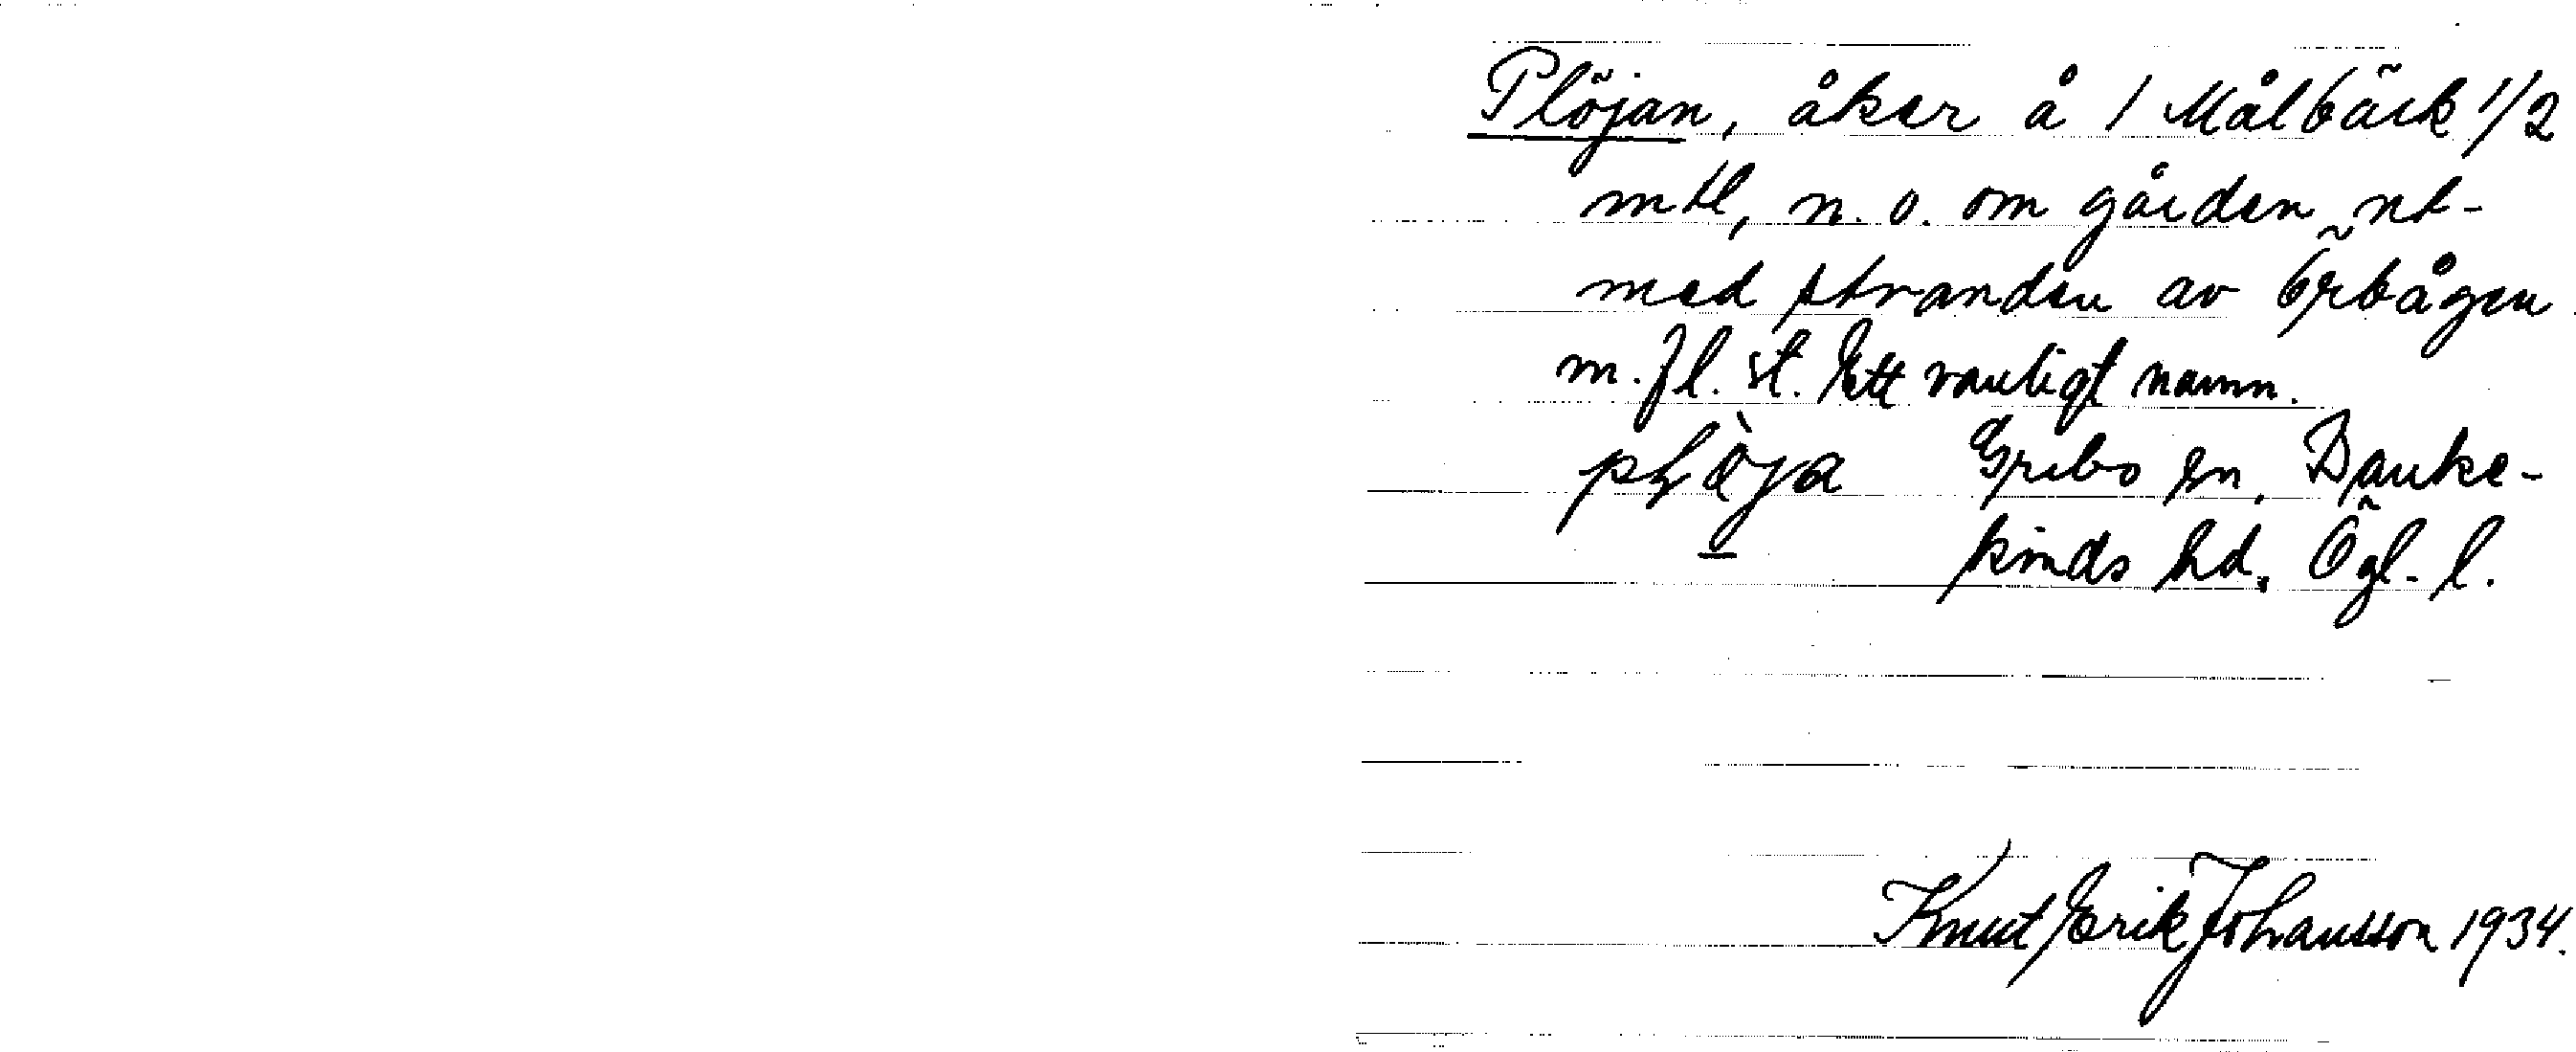 Plöjan, åker å 1 Målbäck 1/2
mtl, n. o. om gården ut-
med stranden av Örbågen
m. fl. st. Ett vanligt namn.
Grebo sn, Banke-
kinds hd, Ögl. l.
Knut Erik Johansson 1934.